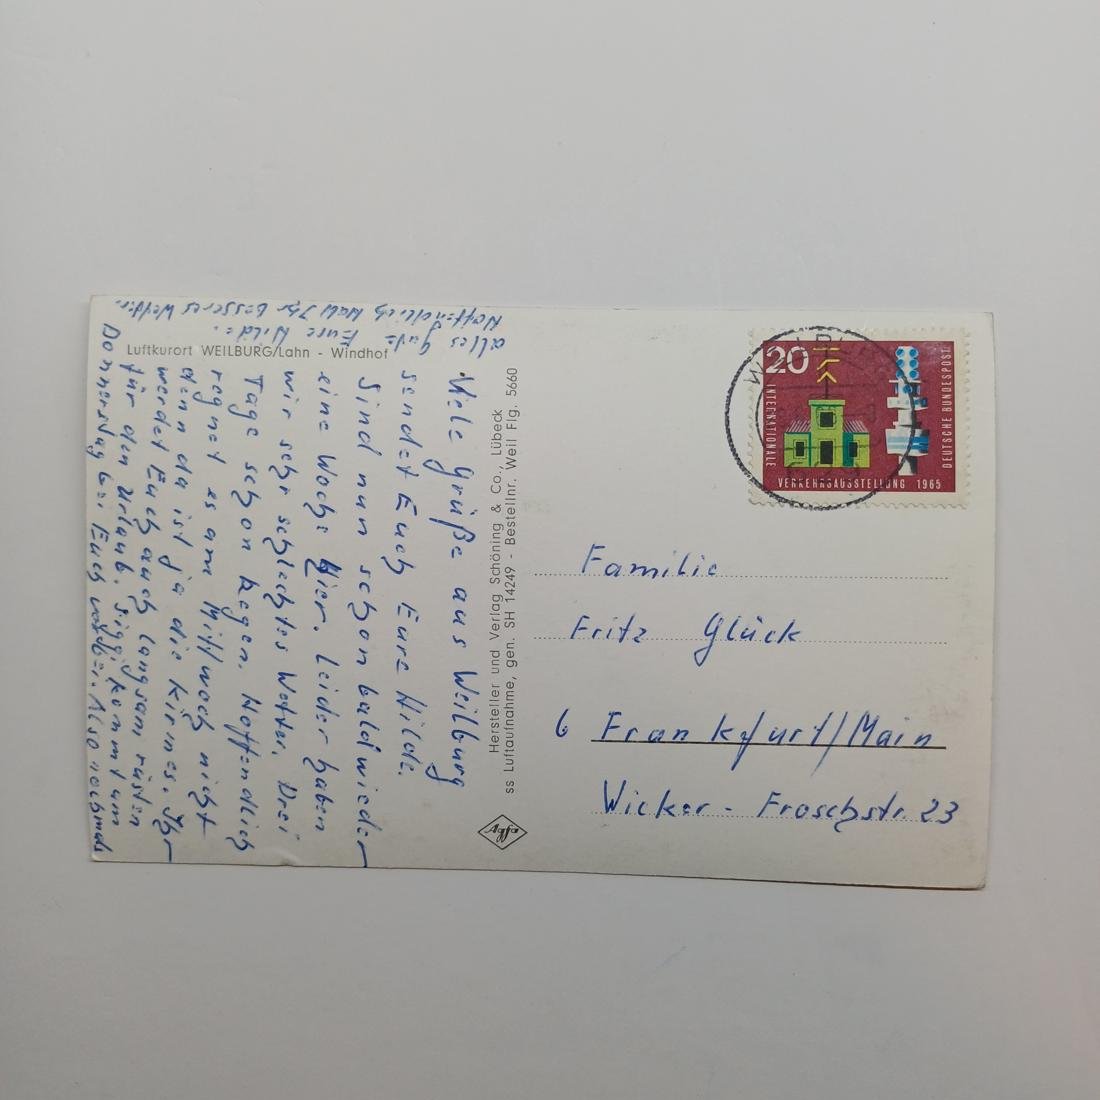 Luftkurort WEILBURG/Lahn - Windhof
Viele Grüße aus Weilburg
sendet Euch Eure Hilde.
Sind nun schon bald wieder
eine Woche hier. Leider haben
wir sehr schlechtes Wetter. Drei
Tage schon Regen. Hoffendlich
regnet es am Mittwoch nicht
denn da ist ja die Kirmes. Ihr
werdet Euch auch langsam rüsten
für den Urlaub. Siggi kommt am
Donnerstag bei Euch vorbei. Also nochmals
alles Gute Eure Hilde.
Hoffendlich habt Ihr besseres Wetter.
Hersteller und Verlag Schöning & Co., Lübeck
ss Luftaufnahme, gen. SH 14249 - Bestellnr. Weil Flg. 5660
Agfa
20
INTERNATIONALE
VERKEHRSAUSSTELLUNG 1965
DEUTSCHE BUNDESPOST
Familie
Fritz Glück
6 Frankfurt/Main
Wicker-Froschstr. 23